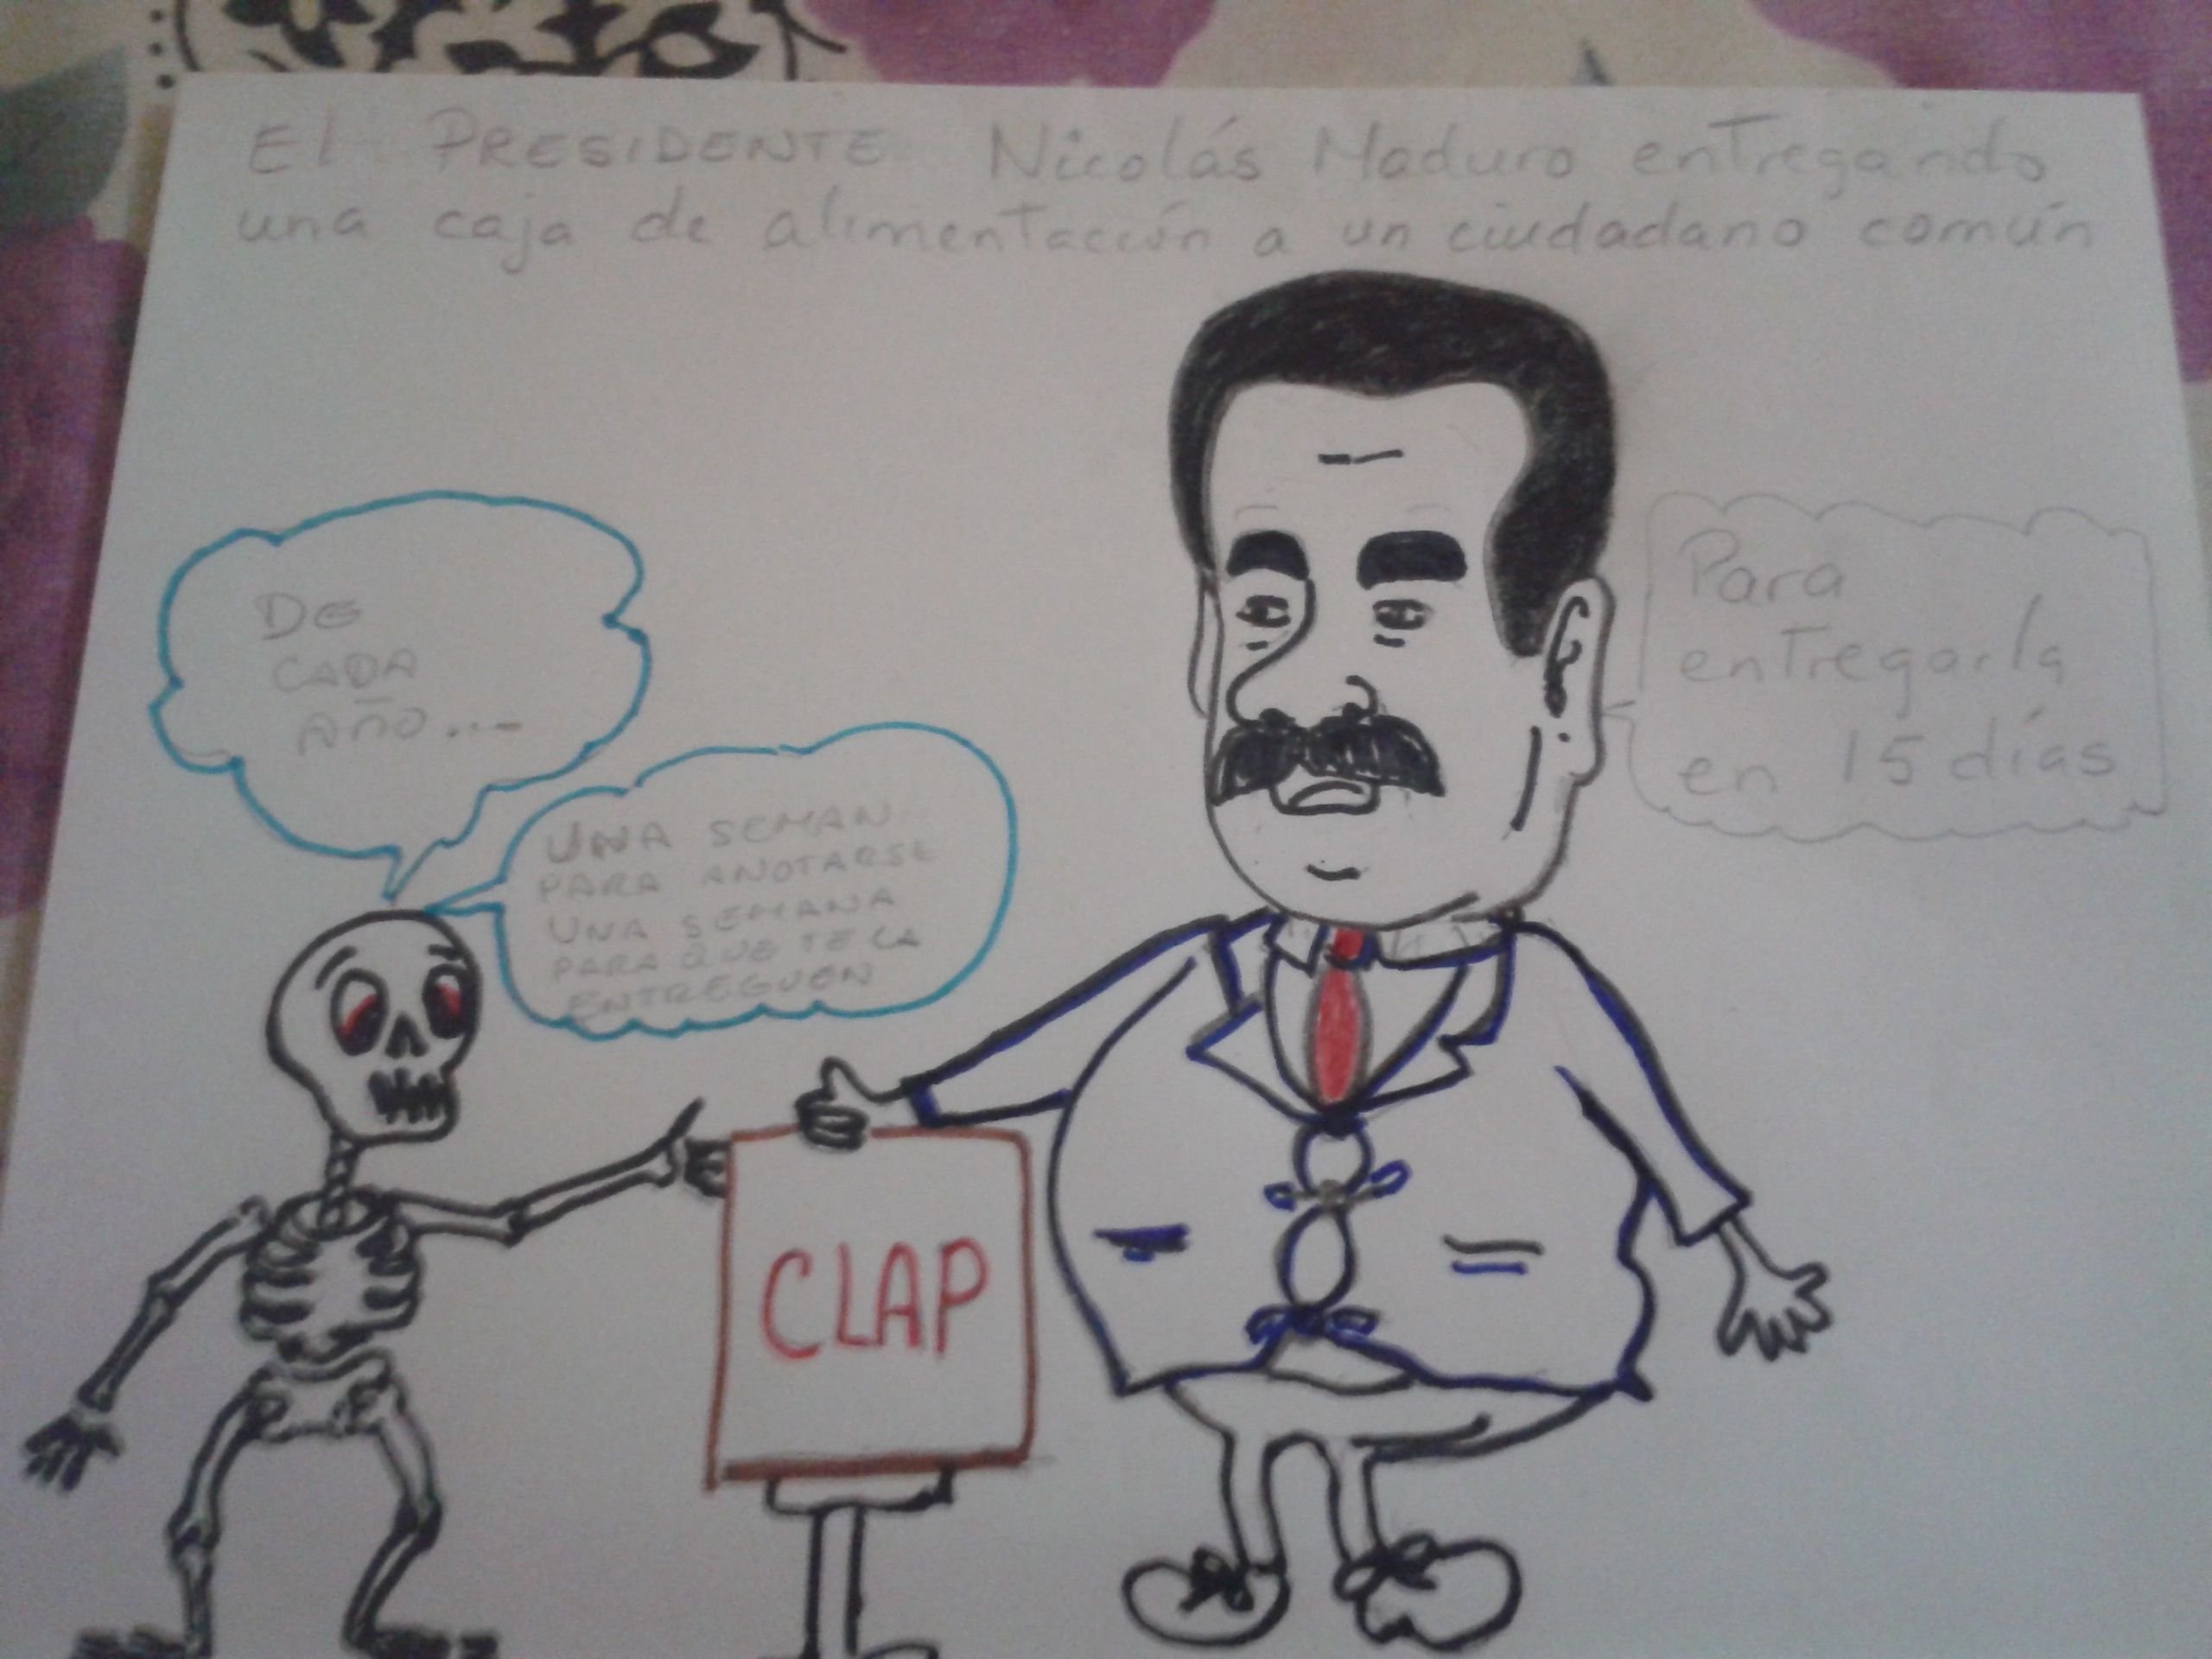 El PRESIDENTE Nicolás Maduro entregando
una caja de alimentación a un ciudadano común
Para
entregarla
en 15 días
DE
CADA
AÑO...
UNA SEMAN
PARA ANOTARSE
UNA SEMANA
PARA QUE TE LA
ENTREGUEN
CLAP